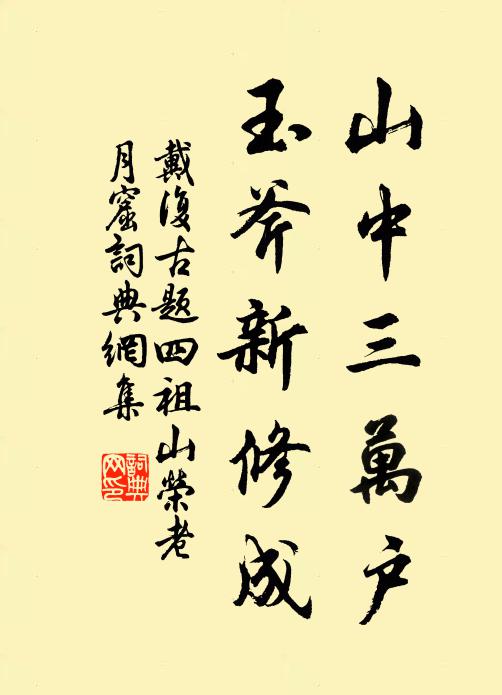 山中三萬户
玉斧新修成
戴復古題四祖山榮老
月窟詞典網集
詞典
网印